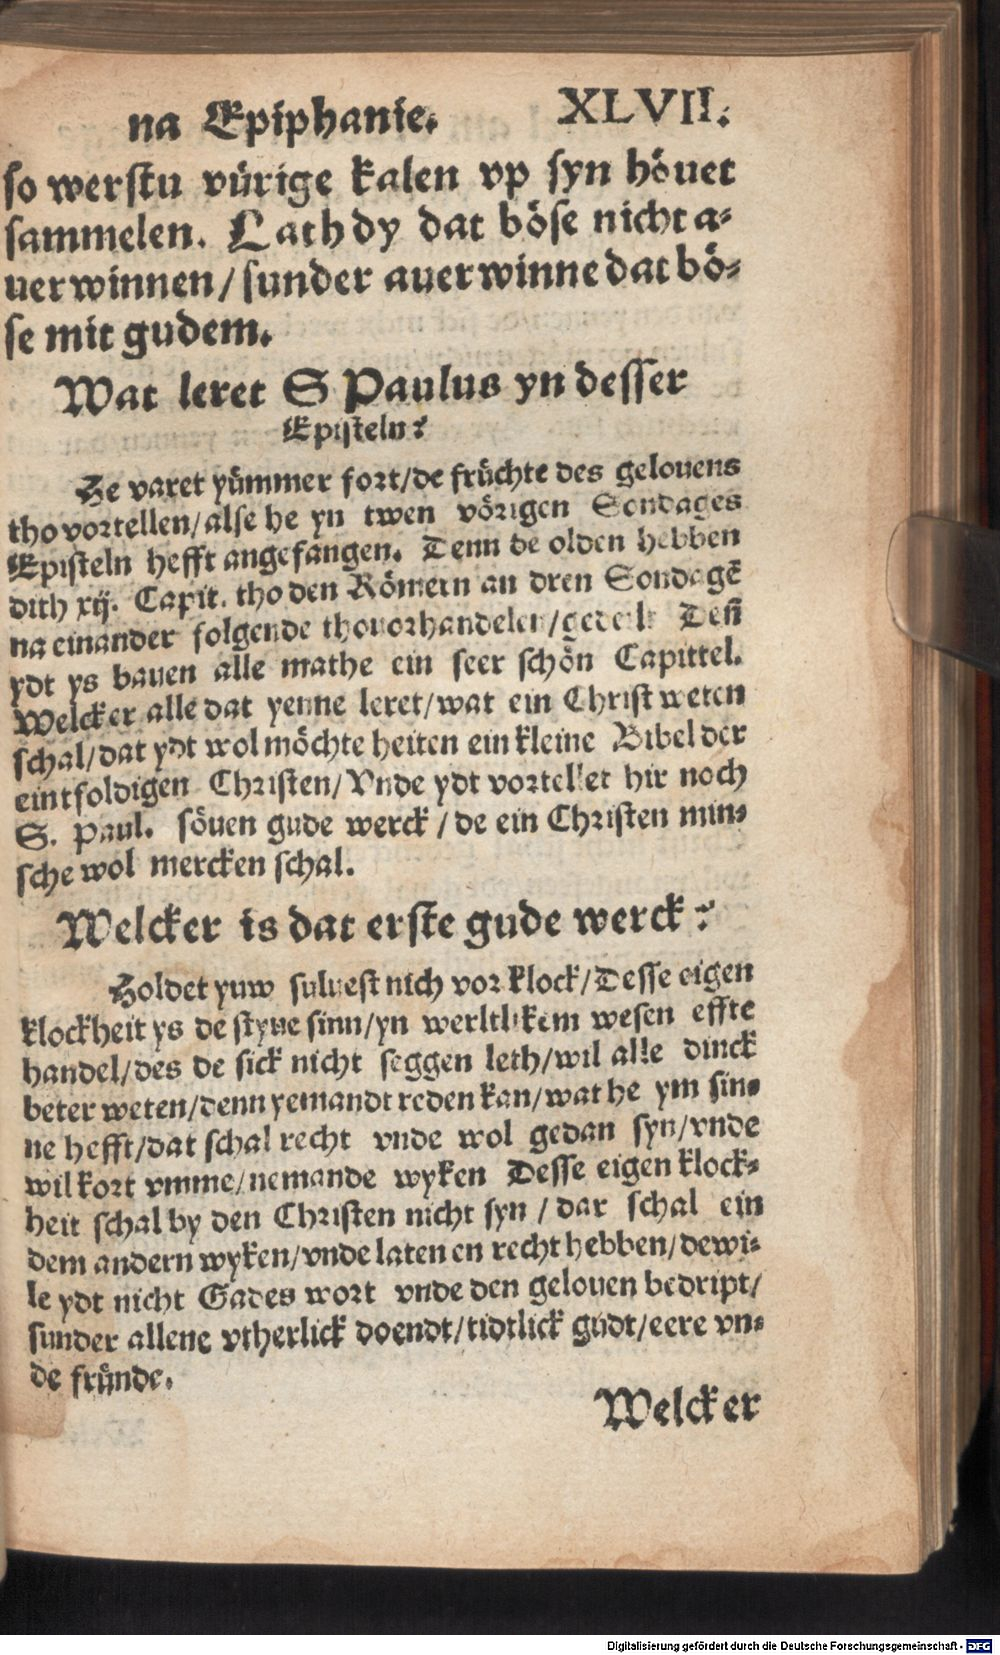 na Epiphanie. XLVII.
so werstu vürige kalen vp syn höuet
sammelen. Lath dy dat böse nicht a-
uerwinnen/ sunder auerwinne dat bö-
se mit gudem.
Wat leret S Paulus yn desser
Episteln?
He varet yümmer fort/ de früchte des gelouens
tho vortellen/ alse he yn twen vörigen Sondages
Episteln hefft angefangen. Denn de olden hebben
dith xij. Capit. tho den Römern an dren Sondagē
na einander folgende thouorhandelen/ gedeilt Deñ
ydt ys bauen alle mathe ein seer schön Capittel.
Welcker alle dat yenne leret/ wat ein Christ weten
schal/ dat ydt wol möchte heiten ein kleine Bibel der
eintfoldigen Christen/ Vnde ydt vortellet hir noch
S. Paul. söuen gude werck / de ein Christen min-
sche wol mercken schal.
Welcker is dat erste gude werck?
Holdet yuw suluest nich vor klock/ Desse eigen
klockheit ys de styue sinn/ yn werltlikem wesen effte
handel/ des de sick nicht seggen leth/ wil alle dinck
beter weten/ denn yemandt reden kan/ wat he ym sin-
ne hefft/ dat schal recht vnde wol gedan syn/ vnde
wil kort vmme/ nemande wyken Desse eigen klock-
heit schal by den Christen nicht syn / dar schal ein
dem andern wyken/ vnde laten en recht hebben/ dewi-
le ydt nicht Gades wort vnde den gelouen bedript/
sunder allene vtherlick doendt/ tidtlick gudt/ eere vn-
de fründe.
Welcker
Digitalisierung gefördert durch die Deutsche Forschungsgemeinschaft - DFG